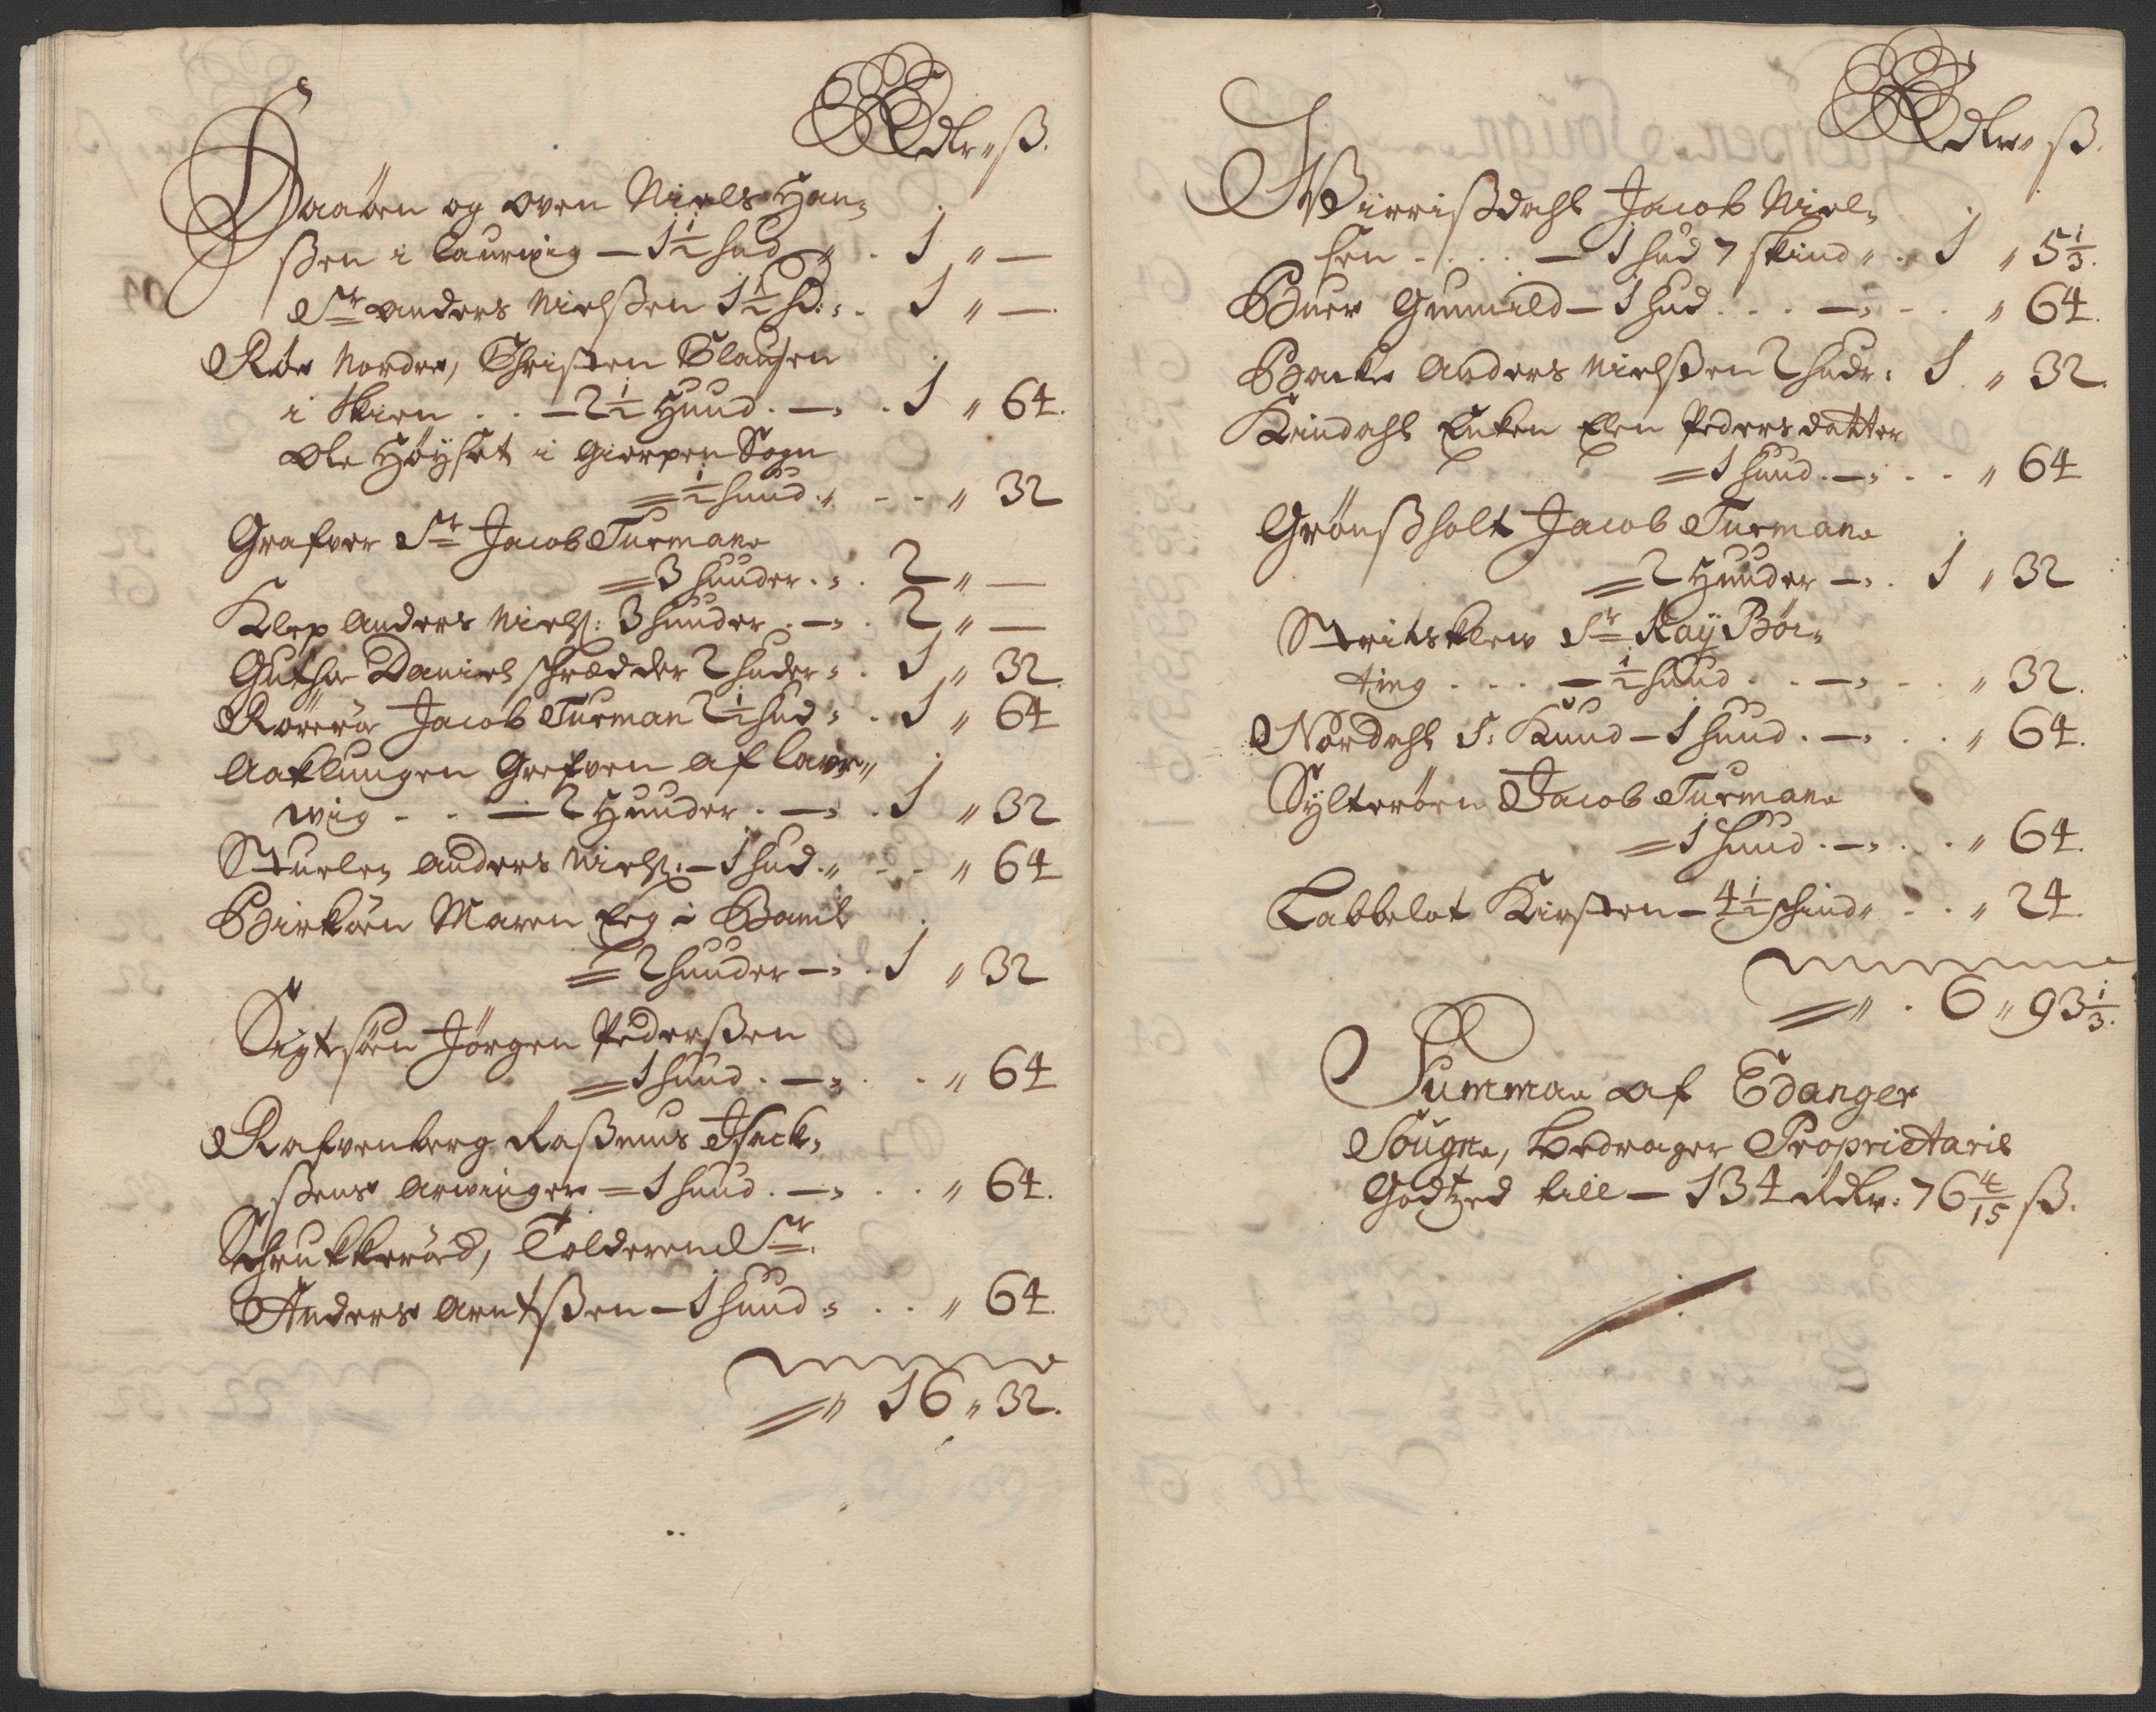 Rdlr „ ß.
Daaøen og oven Niels Han„
ßen i Laurwig — 1½ hud „ . 1 „ —
Sr Anders Nielßen 1½ hd: „ . 1 „ —
Røe Nordre, Christen Clausen
i Skien . . — 2½ Huud . — „ . 1 „ 64.
Ole Høyset i Gierpen Sogn
= ½ huud „ - - „ 32
Grafver Sr Jacob Turmane
= 3 huuder . „ . 2 „ —
Klep Anders Niels: 3 huuder . — „ . 2 „ —
Guthe Daniel schrædder 2 huder „ . 1 „ 32.
Rörrö Jacob Turman 2½ hud „ . 1 „ 64
Aaklungen Grefven af Laur„
wig - - — 2 Huuder . — „ . 1 „ 32
Stuelen Anders Niels: — 1 hud „ - - „ 64
Birköen Maren Eeg i Bamle
= 2 huuder — „ . 1 „ 32
Sigtsöen Jörgen Pederßen
= 1 huud . — „ . . „ 64
Rafvenberg Raßmus Isack„
ßens Arwinger = 1 huud . — „ . . „ 64.
Schrukkeröd, Tolderen Sr.
Anders Arntßen — 1 huud „ . . „ 64.
= „ 16 „ 32.
Rdlr „ ß.
Wirrißdahl Jacob Niel„
sen . . . . — 1 hud 7 skind „ . 1 „ 5⅓.
Buer Gunnild — 1 hud . . . — „ - . „ 64.
Backe Anders Nielßen 2 hudr: 1 . „ 32.
Kindahl Enken Elen Pedersdatter
= 1 huud . — „ . - „ 64
Grönßholt Jacob Turmane
= 2 Huuder — „ . 1 „ 32
Stritsklew Sr Kaÿ Bör„
ting . . . — ½ huud . . — „ - . „ 32.
Nordahl S: Knud — 1 huud . — „ . . „ 64.
Sÿlteröen Jacob Turmane
= 1 huud . — „ . . „ 64.
Labbelot Kirsten — 4½ schind „ - . „ 24.
= „ . 6 „ 93⅓.
Summa af Edanger
Sougne, bedrager Proprietarie
Godtzed till — 134 Rdlr: 76 4/15 ß.